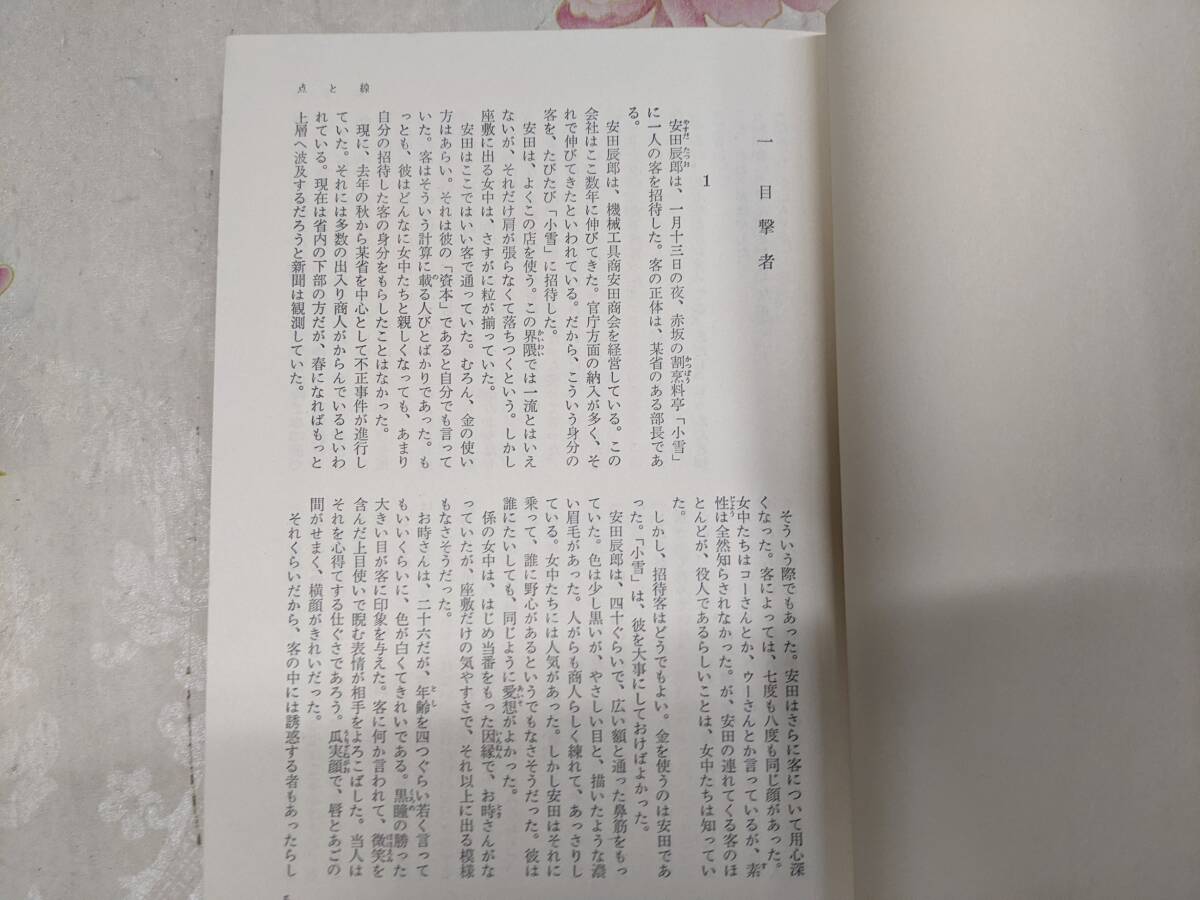 点と線
一 目撃者
1
安田辰郎は、一月十三日の夜、赤坂の割烹料亭「小雪」
に一人の客を招待した。客の正体は、某省のある部長であ
る。
安田辰郎は、機械工具商安田商会を経営している。この
会社はここ数年に伸びてきた。官庁方面の納入が多く、そ
れで伸びてきたといわれている。だから、こういう身分の
客を、たびたび「小雪」に招待した。
安田は、よくこの店を使う。この界隈では一流とはいえ
ないが、それだけ肩が張らなくて落ちつくという。しかし
座敷に出る女中は、さすがに粒が揃っていた。
安田はここではいい客で通っていた。むろん、金の使い
方はあらい。それは彼の「資本」であると自分でも言って
いた。客はそういう計算に載る人びとばかりであった。も
っとも、彼はどんなに女中たちと親しくなっても、あまり
自分の招待した客の身分をもらしたことはなかった。
現に、去年の秋から某省を中心として不正事件が進行し
ていた。それには多数の出入り商人がからんでいるといわ
れている。現在は省内の下部の方だが、春になればもっと
上層へ波及するだろうと新聞は観測していた。
そういう際でもあった。安田はさらに客について用心深
くなった。客によっては、七度も八度も同じ顔があった。
女中たちはコーさんとか、ウーさんとか言っているが、素
性は全然知らされなかった。が、安田の連れてくる客のほ
とんどが、役人であるらしいことは、女中たちは知ってい
た。
しかし、招待客はどうでもよい。金を使うのは安田であ
った。「小雪」は、彼を大事にしておけばよかった。
安田辰郎は、四十ぐらいで、広い額と通った鼻筋をもっ
ていた。色は少し黒いが、やさしい目と、描いたような濃
い眉毛があった。人がらも商人らしく練れて、あっさりし
ている。女中たちには人気があった。しかし安田はそれに
乗って、誰に野心があるというでもなさそうだった。彼は
誰にたいしても、同じように愛想がよかった。
係の女中は、はじめ当番をもった因縁で、お時さんがな
っていたが、座敷だけの気やすさで、それ以上に出る模様
もなさそうだった。
お時さんは、二十六だが、年齢を四つぐらい若く言って
もいいくらいに、色が白くてきれいである。黒瞳の勝った
大きい目が客に印象を与えた。客に何か言われて、微笑を
含んだ上目使いで睨む表情が相手をよろこばした。当人は
それを心得てする仕ぐさであろう。瓜実顔で、唇とあごの
間がせまく、横顔がきれいだった。
それくらいだから、客の中には誘惑する者もあったらし